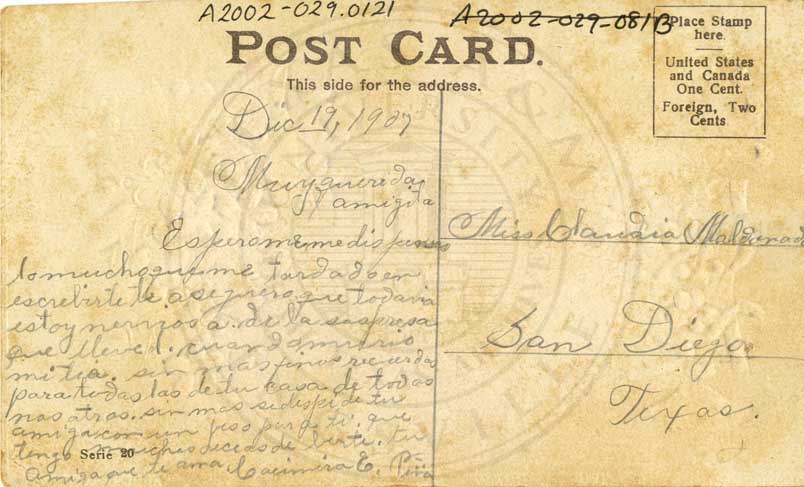 A2002-029.0121
A2002-029-081B
POST CARD.
This side for the address.
Place Stamp
here.
United States
and Canada
One Cent.
Foreign, Two
Cents
Dic 19, 1907
Muy quereda
amigita
Espero me me dispenses
lo mucho que me tardado en
escrebirte te aseguro que todavia
estoy nervioza de la sospresa
que lleve. cuando murio
mi tia. sin mas finos recuerdos
para todas las de tu casa de todas
nos otras. sin mas se dispide tu
amiga con un beso para ti. que
tengo muchos deceos de berte. tu
amiga que te ama Casimira E. Peña
Serie 20
Miss Claudia Maldonado
San Diego
Texas.